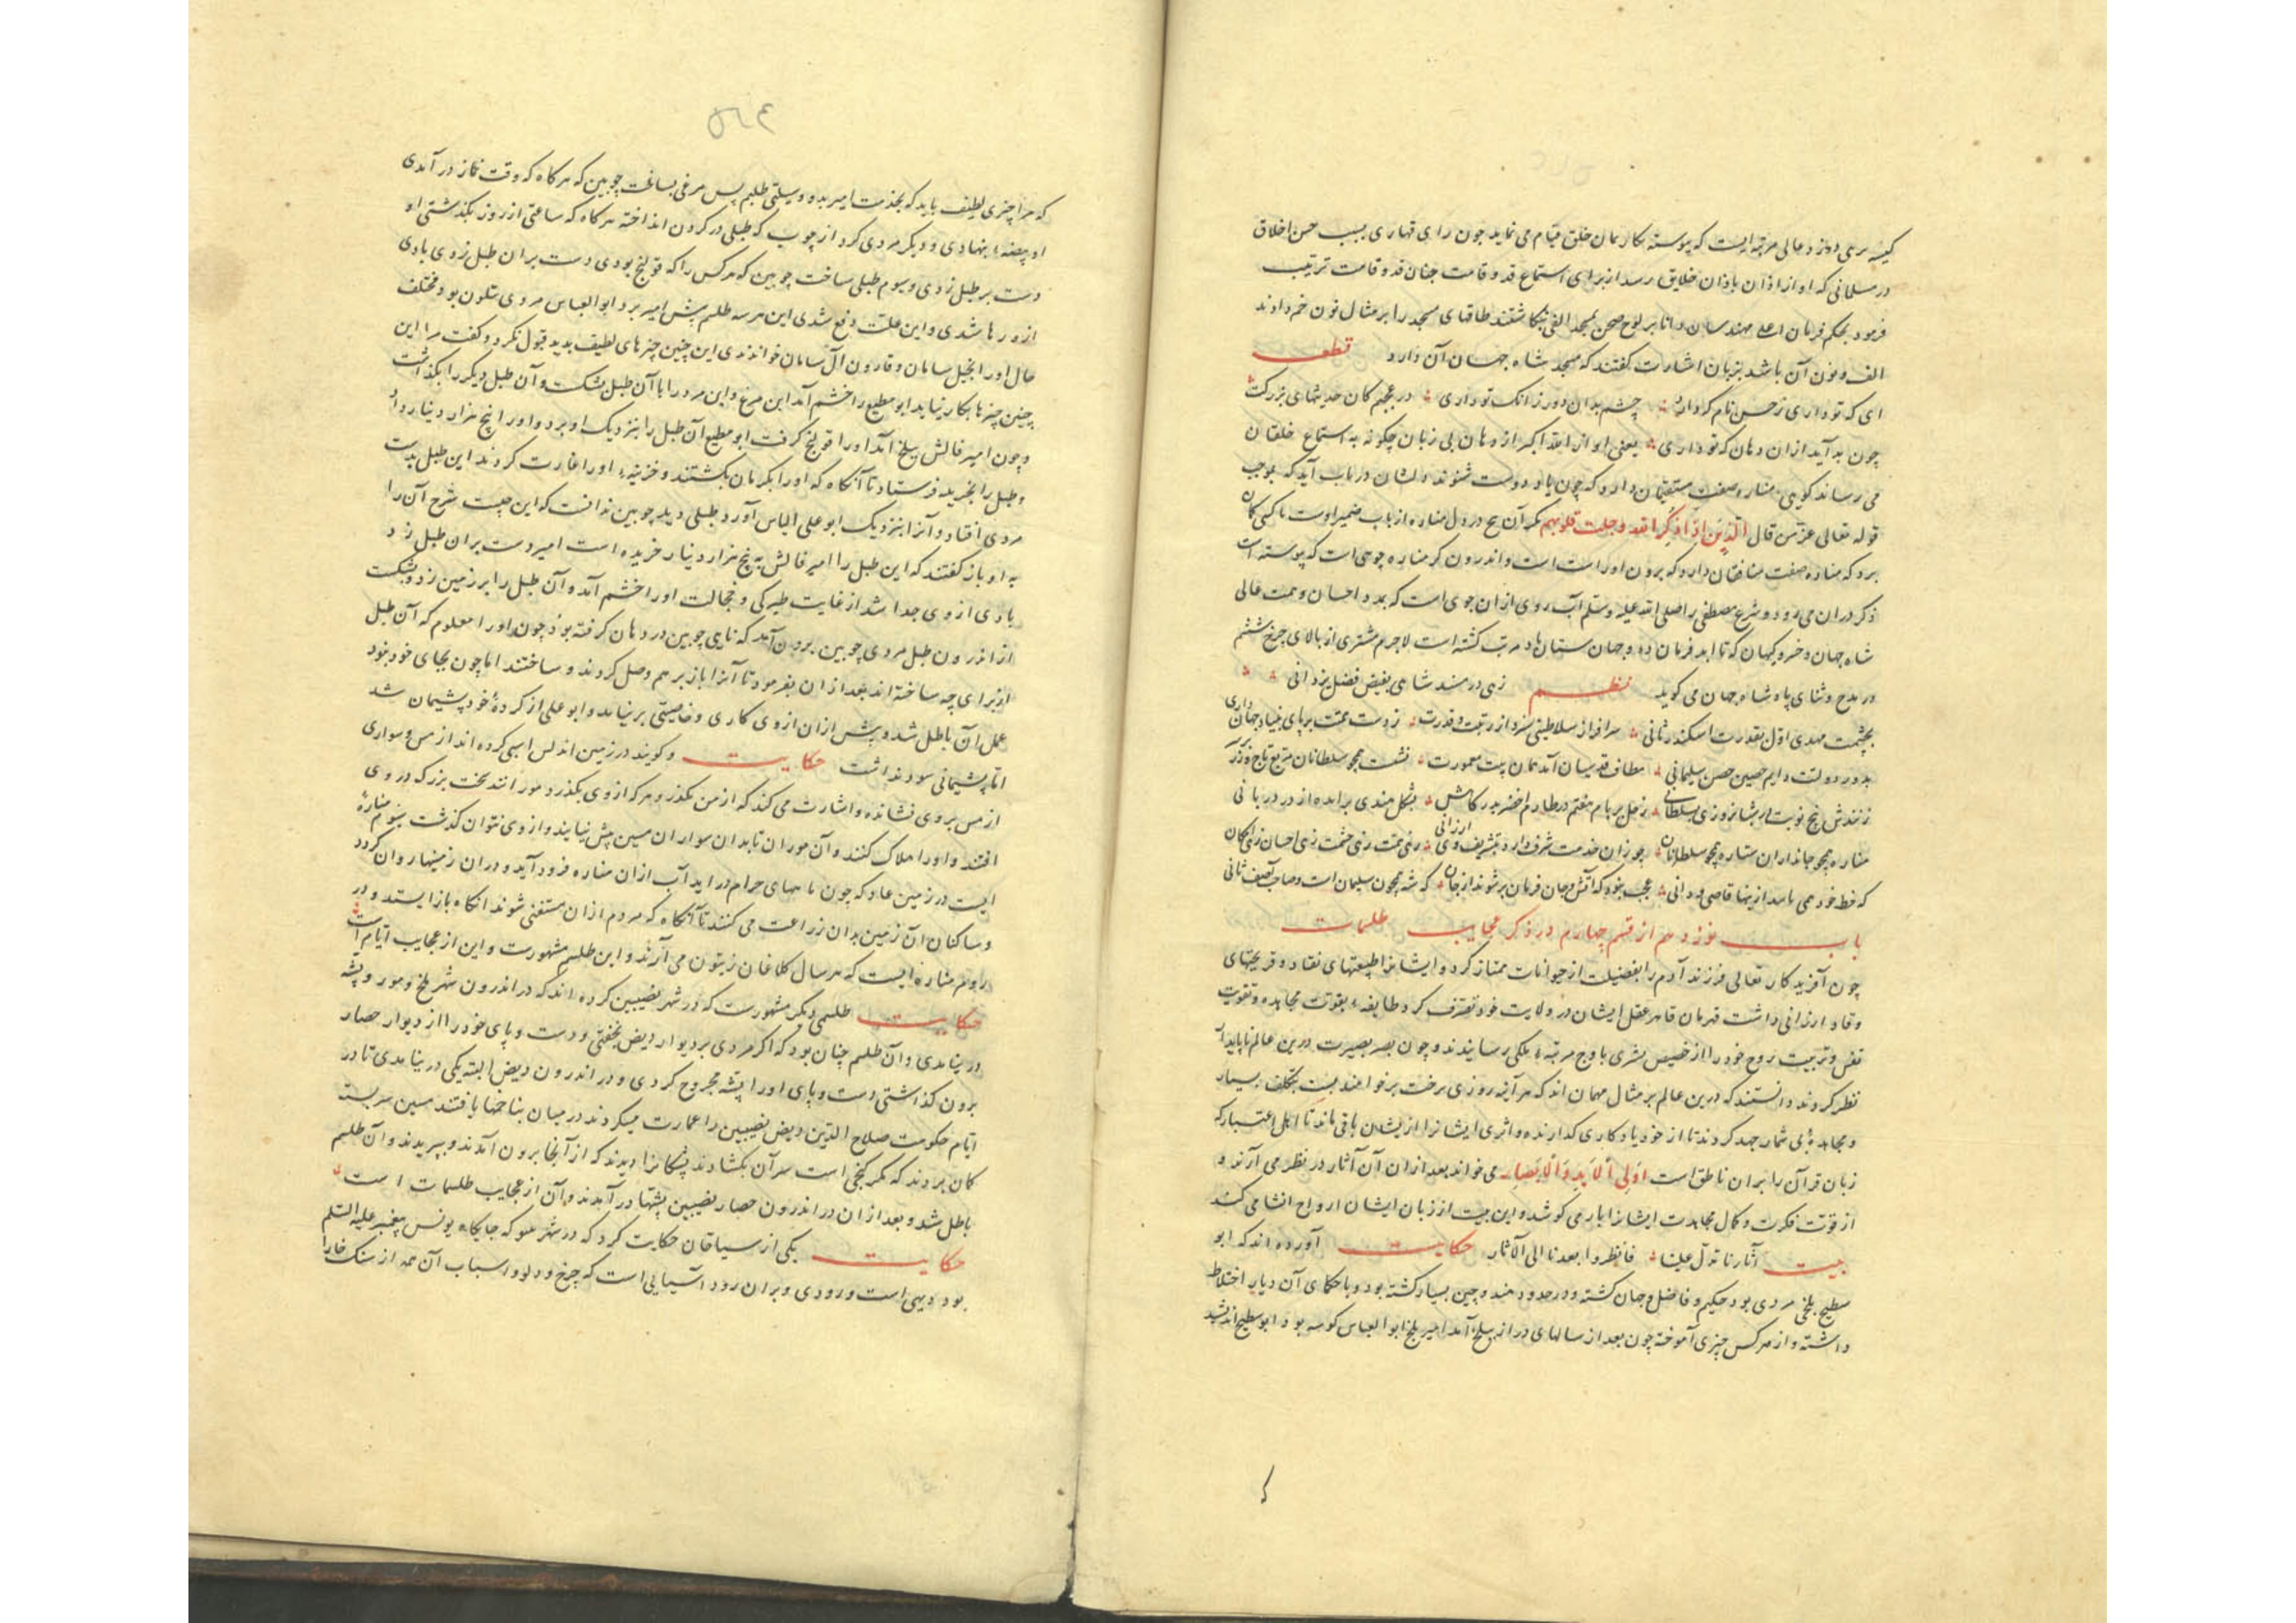 کیسه بری دیگر و عالی مرتبه ایست که پیوسته بکار بمان خلق قیام می نماید چون رای قهاری بسبب حسن اخلاق
در مسلمانی که آواز اذان باذان خلایق رسد از برای استماع قد و قامت چنان قد و قامت ترتیب
فرمود بحکم فرمان اعلی مهندسان دانا بر لوح صحن مسجد الفی بنگاشتند طاقهای مسجد را بر مثال نون خم دادند
الف و نون آن باشد بزبان اشارت گفتند که مسجد شاه جهان آن دارد قطعه
ای که تو داری ز حسن نام کرداد چشم بدان دور زانک تو داری در عجبم کان حدیثهای بزرگت
چون بدر آید ازان دهان که تو داری یعنی آواز الله اکبر از دهان بی زبان چگونه به استماع خلقان
می رساند کویی مناره صفت مستقیمان دارد که چون یاد دوست شنوند دلشان در باب آید که بموجب
قوله تعالی عز من قال الذین اذا ذکر الله وجلت قلوبهم مگر آن میخ در دل مناره از باب ضمیر اوست تا کسی گمان
برد که مناره صفت منافقان دارد که برون او راست است و اندرون کژ مناره چوجی است که پیوسته
ذکر در ان می رود و شرع مصطفی را صلی الله علیه وسلم آب روی ازان جوی است که بمدد احسان و همت عالی
شاه جهان و خسرو کیهان که تا ابد فرمان ده و جهان ستان باد مرتب گشته است لاجرم مشتری از بالای چرخ ششم
در مدح و ثنای پادشاه جهان می گوید نظم زهی در مسند شاهی بفیض فضل یزدانی
بحشمت مهدی اول بقدرت اسکندر ثانی سرافراز سلاطینی سزد از رتبت و قدرت ز دست همتت بر پای بنیاد جهانداری
بدور دولت دایم حصین حصن سلیمانی مطاف قدسیان آمد همان بیت معمورت نشست همچو سلطانان مربع تاج زر
زنندش پنج نوبت در شبانروزی بسلطانی زحل بر بام هفتم در طارم اخضر بدرگاهش بشکل هندی برامده از در دربانی
مناره همچو جانداران ستاره همچو سلطانان چو زان خدمت شرف دارد بتشریف ارزانی زهی همت زهی حشمت زهی احسان زهی امکان
که خط خود همی نامد ازینها قاصی و دانی عجب نبود که انس و جان فرمان بر شوند از جان که شه همچون سلیمان است و صاحب آصف ثانی
باب نوزدهم از قسم چهارم در ذکر عجایب طلسمات
چون آفریدکار تعالی فرزند آدم را بفضیلت از حیوانات ممتاز کرد و ایشانرا طبیعتهای نقاد و قریحتهای
وقاد ارزانی داشت قهرمان قاهر عقل ایشان در ولایت خود تصرف کرد طایفه بقوت مجاهده و تقویت
نفس و تربیت روح خود را از حضیض بشری باوج مرتبه ملکی رسانیدند و چون بصر بصیرت درین عالم ناپایدار
نظر کردند دانستند که درین عالم بر مثال مهمان اند که هر آینه روزی رخت بر خواهند بست بتکلف بسیار
و مجاهده بی شمار جهد کردند تا از خود یادکاری گذارنده و اثری ایشانرا ازیشان باقی ماند تا اهل اعتبار که
زبان قرآن را بران ناطق است اولی الاید و الابصار می خواند بعد ازان آن آثار در نظر می آرند و
از قوت فکرت و کمال مجاهدت ایشانرا یاد می کوشد و این بیت از زبان ایشان ارواح انشا می کنند
بیت آثارنا تدل علینا فانظروا بعدنا الی الآثار حکایت آورده اند که ابو
مطیع بلخی مردی بود حکیم و فاضل و جهان گشته و در حدود هند و چین بسیار گشته بود و با حکمای آن دیار اختلاط
داشته و از هر کس چیزی آموخته چون بعد از سالهای دراز ببلخ آمد امیر بلخ ابو العباس کوسه بود ابو مطیع اندیشید
۵۶۴
که مرا چیزی لطیف باید که بخدمت امیر بدو وسیلتی طلبم پس مرغی بساخت چوبین که هرگاه که وقت نماز در آمدی
او بیضه بنهادی و دیگر مردی کرد از چوب که طبلی در گردن انداخته هرگاه که ساعتی از روز بگذشتی او
دست بر طبل زدی و سیوم طبلی ساخت چوبین که هر کس را که قولنج بودی دست بران طبل زدی بادی
ازو رها شدی و این علت دفع شدی این هر سه طلسم پیش امیر برد ابو العباس مردی متلون بود مختلف
حال او را بخیل سامان و قارون آل سامان خواندندی این چنین چیزهای لطیف بدید قبول نکرد و گفت مرا این
چنین چیزها بکار نیاید ابو مطیع را خشم آمد این مرغ و این مرد را با آن طبل بشکست و آن طبل دیگر را بگذاشت
و چون امیر فالش ببلخ آمد او را قولنج گرفت ابو مطیع آن طبل را بنزدیک او برد و او را پنج هزار دینار داد
و طبل را بخزینه فرستاد تا آنگاه که او را بکرمان بکشتند و خزینه او را غارت کردند این طبل بدست
مردی افتاد و آنرا بنزدیک ابو علی الیاس آورد طبلی دید چوبین ندانست که این چیست شرح آن را
به او باز گفتند که این طبل را امیر فالش به پنج هزار دینار خریده است امیر دست بران طبل زد
بادی از وی جدا شد از غایت طیرگی و خجالت او را خشم آمد و آن طبل را بر زمین زد و بشکست
از اندرون طبل مردی چوبین برون آمد که نایی چوبین در دهان گرفته بود چون او را معلوم که آن طبل
از برای چه ساخته اند بعد ازان بفرمود تا آنرا باز بر هم وصل کردند و ساختند اما چون بجای خود نبود
عمل آن باطل شد و پیش ازان از وی کاری و خاصیتی بر نیامد و ابو علی از کرده خود پشیمان شد
اما پشیمانی سود نداشت حکایت و گویند در زمین اندلس اسپی کرده اند از مس و سواری
از مس بر وی نشانده و اشارت می کند که از من بگذر و هر که از وی بگذرد مورانند سخت بزرگ در وی
افتند و او را هلاک کنند و آن موران تا بدان سواران مسین پیش نیایند و از وی نتوان گذشت سیوم مناره
ایست در زمین عاد که چون ماههای حرام در اید آب ازان مناره فرود آید و دران زمینها روان گردد
و ساکنان آن زمین بدان زراعت می کنند تا آنگاه که مردم ازان مستغنی شوند انگاه باز ایستد و در
روم مناره ایست که هر سال کلاغان زیتون می آرند و این طلسم مشهورست و این از عجایب ایام است
حکایت طلسمی دیگر مشهورست که در شهر نصیبین کرده اند که در اندرون شهر ملخ و مور و پشه
در نیامدی و آن طلسم چنان بود که اگر مردی بر دیوار ربض بخفتی و دست و پای خود را از دیوار حصار
برون گذاشتی دست و پای او را پشه مجروح کردی و در اندرون ربض البته یکی در نیامدی تا در
ایام حکومت صلاح الدین ربض نصیبین را عمارت میکردند در میان بنا خمها یافتند مسین سربسته
گمان بردند که مگر گنجی است سر آن بگشادند پشگانرا دیدند که از آنجا برون آمدند و بپریدند و آن طلسم
باطل شد و بعد ازان در اندرون حصار نصیبین پشها در آمدند و آن از عجایب طلسمات است
حکایت یکی از سیاقان حکایت کرد که در شهر ملو که جایگاه یونس پیغمبر علیه السلم
بود دیهی است و رودی و بران رود آسیایی است که چرخ و دلو و اسباب آن همه از سنگ خارا